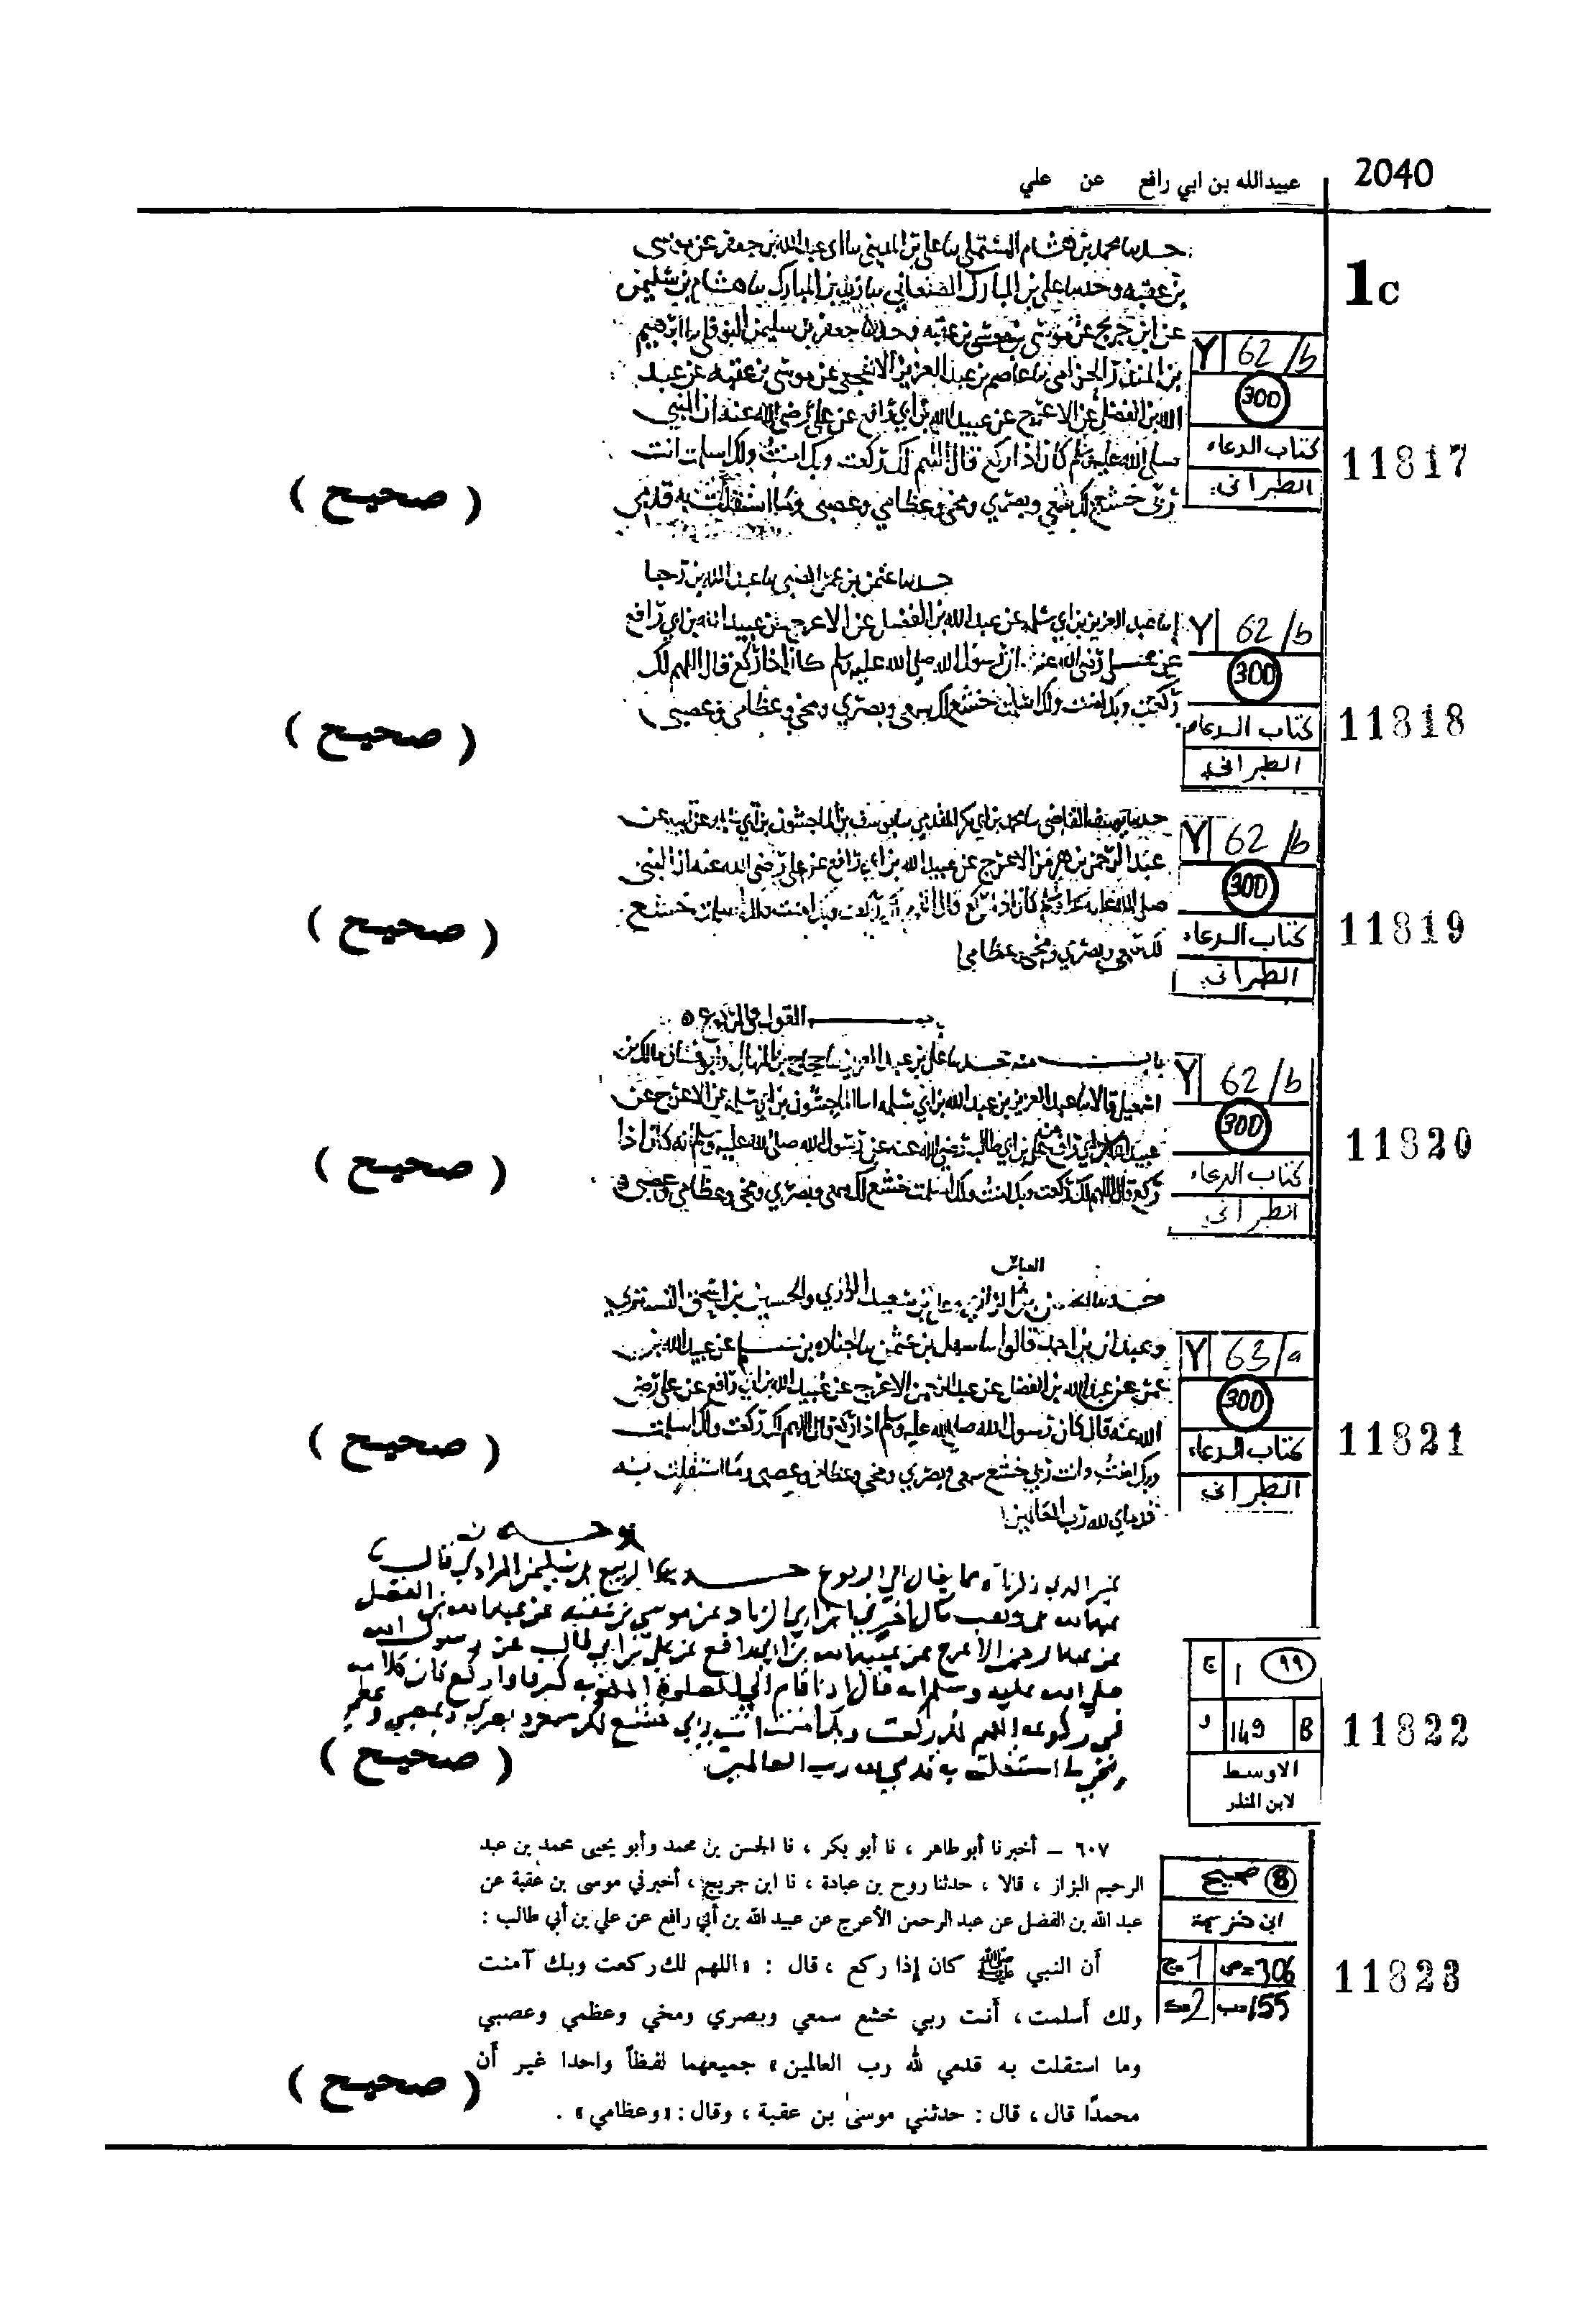 2040
عبيدالله بن ابي رافع عن علي
1c
حدثنا محمد بن هشام المستملي ثنا علي بن المديني
بن عقبه وحدثنا علي بن المبارك الصنعاني ثنا زيد بن المبارك ثنا هشام بن سليمن
عن ابن جريج عن موسى بن عقبه وحدثنا جعفر بن سليمن النوفلي ثنا ابرهيم
بن المنذر الحزامي ثنا عاصم بن عبد العزيز الاشجعي عن موسى بن عقبه عن عبد
الله بن الفضل عن الاعرج عن عبيد الله بن ابي رافع عن علي رضي الله عنه ان النبي
صلى الله عليه وسلم كان اذا ركع قال اللهم لك ركعت وبك امنت ولك اسلمت انت
ربي خشع لك سمعي وبصري ومخي وعظامي وعصبي وما استقلت به قدمي
Y 62/b
300
كتاب الدعاء
الطبراني
11817
( صحيح )
حدثنا عثمن بن عمر الضبي ثنا عبد الله بن رجا
انا عبد العزيز بن ابي سلمه عن عبد الله بن الفضل عن الاعرج عن عبيد الله بن ابي رافع
عن علي رضي الله عنه ان رسول الله صلى الله عليه وسلم كان اذا ركع قال اللهم لك
ركعت وبك امنت ولك اسلمت خشع لك سمعي وبصري ومخي وعظامي وعصبي
Y 62/b
300
كتاب الدعاء
الطبراني
11818
( صحيح )
حدثنا يوسف القاضي ثنا محمد بن ابي بكر المقدمي ثنا يوسف بن الماجشون عن ابيه عن
عبد الرحمن بن هرمز الاعرج عن عبيد الله بن ابي رافع عن علي رضي الله عنه ان النبي
صلى الله عليه وسلم كان اذا ركع قال اللهم لك ركعت وبك امنت ولك اسلمت خشع
لك سمعي وبصري ومخي وعظامي
Y 62/b
300
كتاب الدعاء
الطبراني
11819
( صحيح )
باب القول في الركوع
باب منه حدثنا علي بن عبد العزيز ثنا حجاج بن المنهال وابو غسان مالك بن
اسمعيل قالا ثنا عبد العزيز بن عبد الله بن ابي سلمه الماجشون عن الاعرج عن
عبيد الله بن ابي رافع عن علي بن ابي طالب رضي الله عنه عن رسول الله صلى الله عليه وسلم انه كان اذا
ركع قال اللهم لك ركعت وبك امنت ولك اسلمت خشع لك سمعي وبصري ومخي وعظامي وعصبي
Y 62/b
300
كتاب الدعاء
الطبراني
11820
( صحيح )
العباس
حدثنا الرازي وعلي بن سعيد الرازي والحسين بن اسحق التستري
وعبدان بن احمد قالوا ثنا سهل بن عثمن ثنا جناده بن سلم عن عبيد الله بن
عمر عن عبد الله بن الفضل عن عبد الرحمن الاعرج عن عبيد الله بن ابي رافع عن علي رضي
الله عنه قال كان رسول الله صلى الله عليه وسلم اذا ركع قال اللهم لك ركعت ولك اسلمت
وبك امنت وانت ربي خشع سمعي وبصري ومخي وعظامي وعصبي وما استقلت به
قدماي لله رب العالمين
Y 63/a
300
كتاب الدعاء
الطبراني
11821
( صحيح )
حدثنا الربيع بن سليمن المرادي قال
عبدالله بن وهب قال اخبرني ابن ابي الزناد عن موسى بن عقبة عن عبدالله بن الفضل
عن عبدالرحمن الاعرج عن عبيدالله بن ابي رافع عن علي بن ابي طالب عن رسول الله
صلى الله عليه وسلم انه كان اذا قام الى الصلوة المكتوبة كبر
في ركوعه اللهم لك ركعت وبك امنت انت ربي خشع لك
استقلت به قدمي لله رب العالمين
٩٩ ١ ج
B 149 و
الاوسط
لابن المنذر
11822
( صحيح )
٦٠٧ – أخبرنا أبو طاهر ، نا أبو بكر ، نا الحسن بن محمد وأبو يحيى محمد بن عبد
الرحيم البزاز ، قالا ، حدثنا روح بن عبادة ، نا ابن جريج ، أخبرني موسى بن عقبة عن
عبد الله بن الفضل عن عبد الرحمن الأعرج عن عبيد الله بن أبي رافع عن علي بن أبي طالب :
أن النبي ﷺ كان إذا ركع ، قال : «اللهم لك ركعت وبك آمنت
ولك أسلمت ، أنت ربي خشع سمعي وبصري ومخي وعظمي وعصبي
وما استقلت به قدمي لله رب العالمين» جميعهما لفظاً واحدا غير أن
محمدًا قال ، قال : حدثني موسىٰ بن عقبة ، وقال : «وعظامي» .
8 صحيح
ابن خزيمة
ص=306 ج=1
ب=155 ك=2
11823
( صحيح )